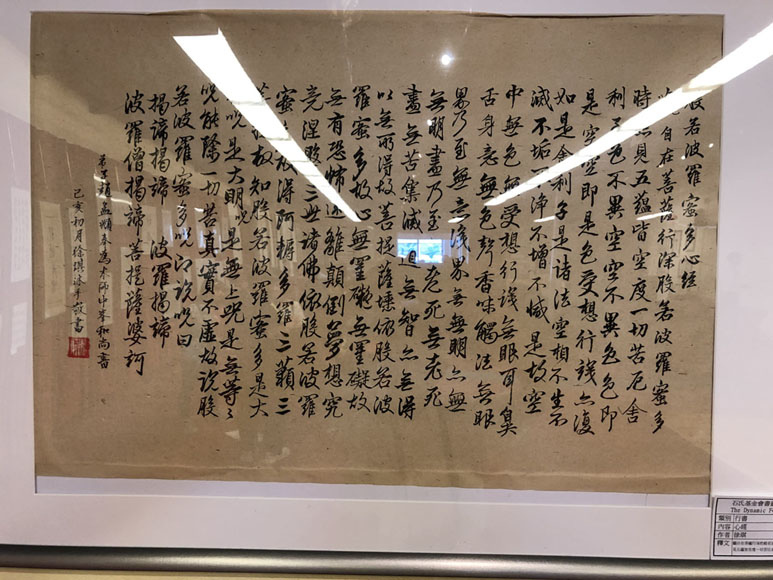 般若波羅蜜多心經
自在菩薩行深般若波羅蜜多
時見五蘊皆空度一切苦厄舍
利子色不異空空不異色色即
是空空即是色受想行識亦復
如是舍利子是諸法空相不生不
滅不垢不淨不增不減是故空
中無色無受想行識無眼耳鼻
舌身意無色聲香味觸法無眼
界乃至無意識界無無明亦無
無明盡乃至老死無老死
盡無苦集滅道無智亦無得
以無所得故菩提薩埵依般若波
羅蜜多故心無罣礙無罣礙故
無有恐怖遠離顛倒夢想究
竟涅槃三世諸佛依般若波羅
蜜多故得阿耨多羅三藐三
菩提故知般若波羅蜜多是大
呪是大明呪是無上呪是無等々
呪能除一切苦真實不虛故說般
若波羅蜜多呪即說呪曰
揭諦揭諦 波羅揭諦
波羅僧揭諦菩提薩婆訶
弟子趙孟頫奉為本師中峯和尚書
己亥初月徐琪沐手敬書
石氏基金會書
The Dynamic F
類別 行書
內容 心經
作者 徐琪
釋文